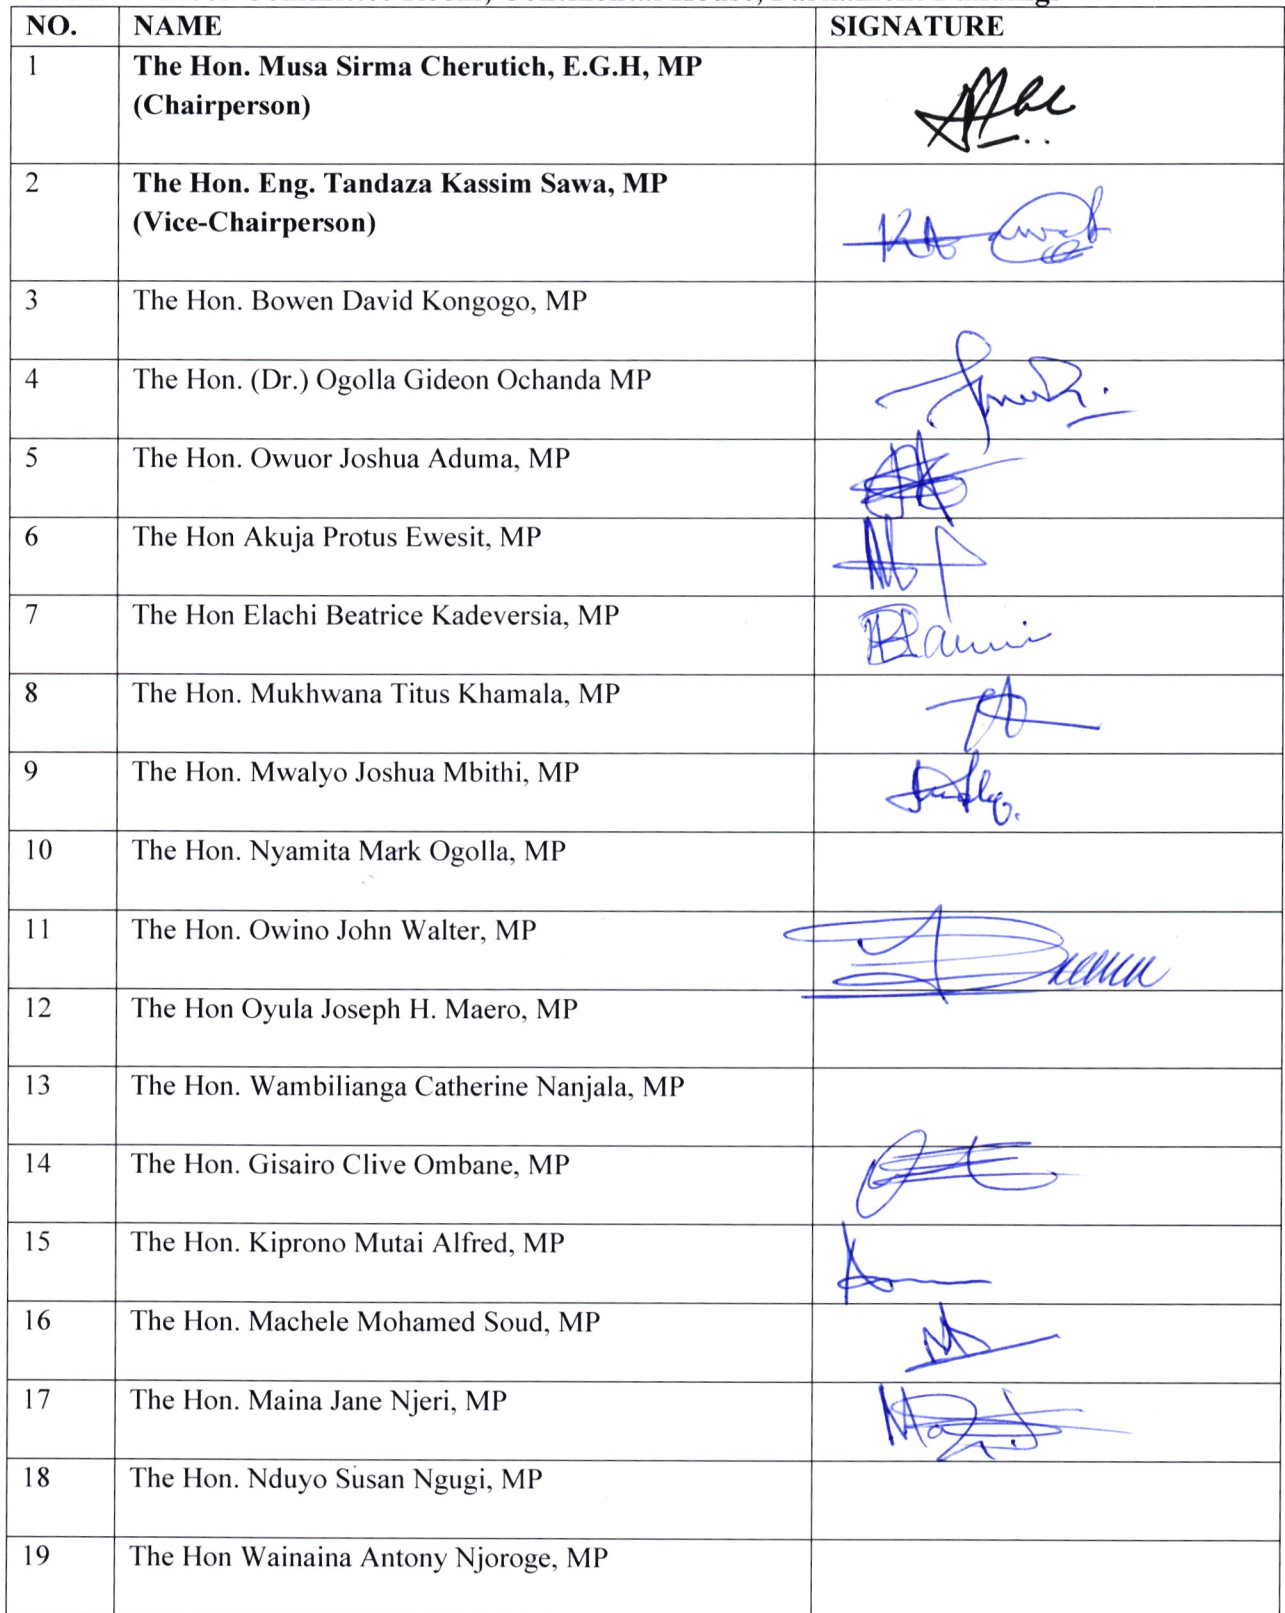 NO. NAME SIGNATURE
1 The Hon. Musa Sirma Cherutich, E.G.H, MP
(Chairperson)
2 The Hon. Eng. Tandaza Kassim Sawa, MP
(Vice-Chairperson)
3 The Hon. Bowen David Kongogo, MP
4 The Hon. (Dr.) Ogolla Gideon Ochanda MP
5 The Hon. Owuor Joshua Aduma, MP
6 The Hon Akuja Protus Ewesit, MP
7 The Hon Elachi Beatrice Kadeversia, MP
8 The Hon. Mukhwana Titus Khamala, MP
9 The Hon. Mwalyo Joshua Mbithi, MP
10 The Hon. Nyamita Mark Ogolla, MP
11 The Hon. Owino John Walter, MP
12 The Hon Oyula Joseph H. Maero, MP
13 The Hon. Wambilianga Catherine Nanjala, MP
14 The Hon. Gisairo Clive Ombane, MP
15 The Hon. Kiprono Mutai Alfred, MP
16 The Hon. Machele Mohamed Soud, MP
17 The Hon. Maina Jane Njeri, MP
18 The Hon. Nduyo Susan Ngugi, MP
19 The Hon Wainaina Antony Njoroge, MP